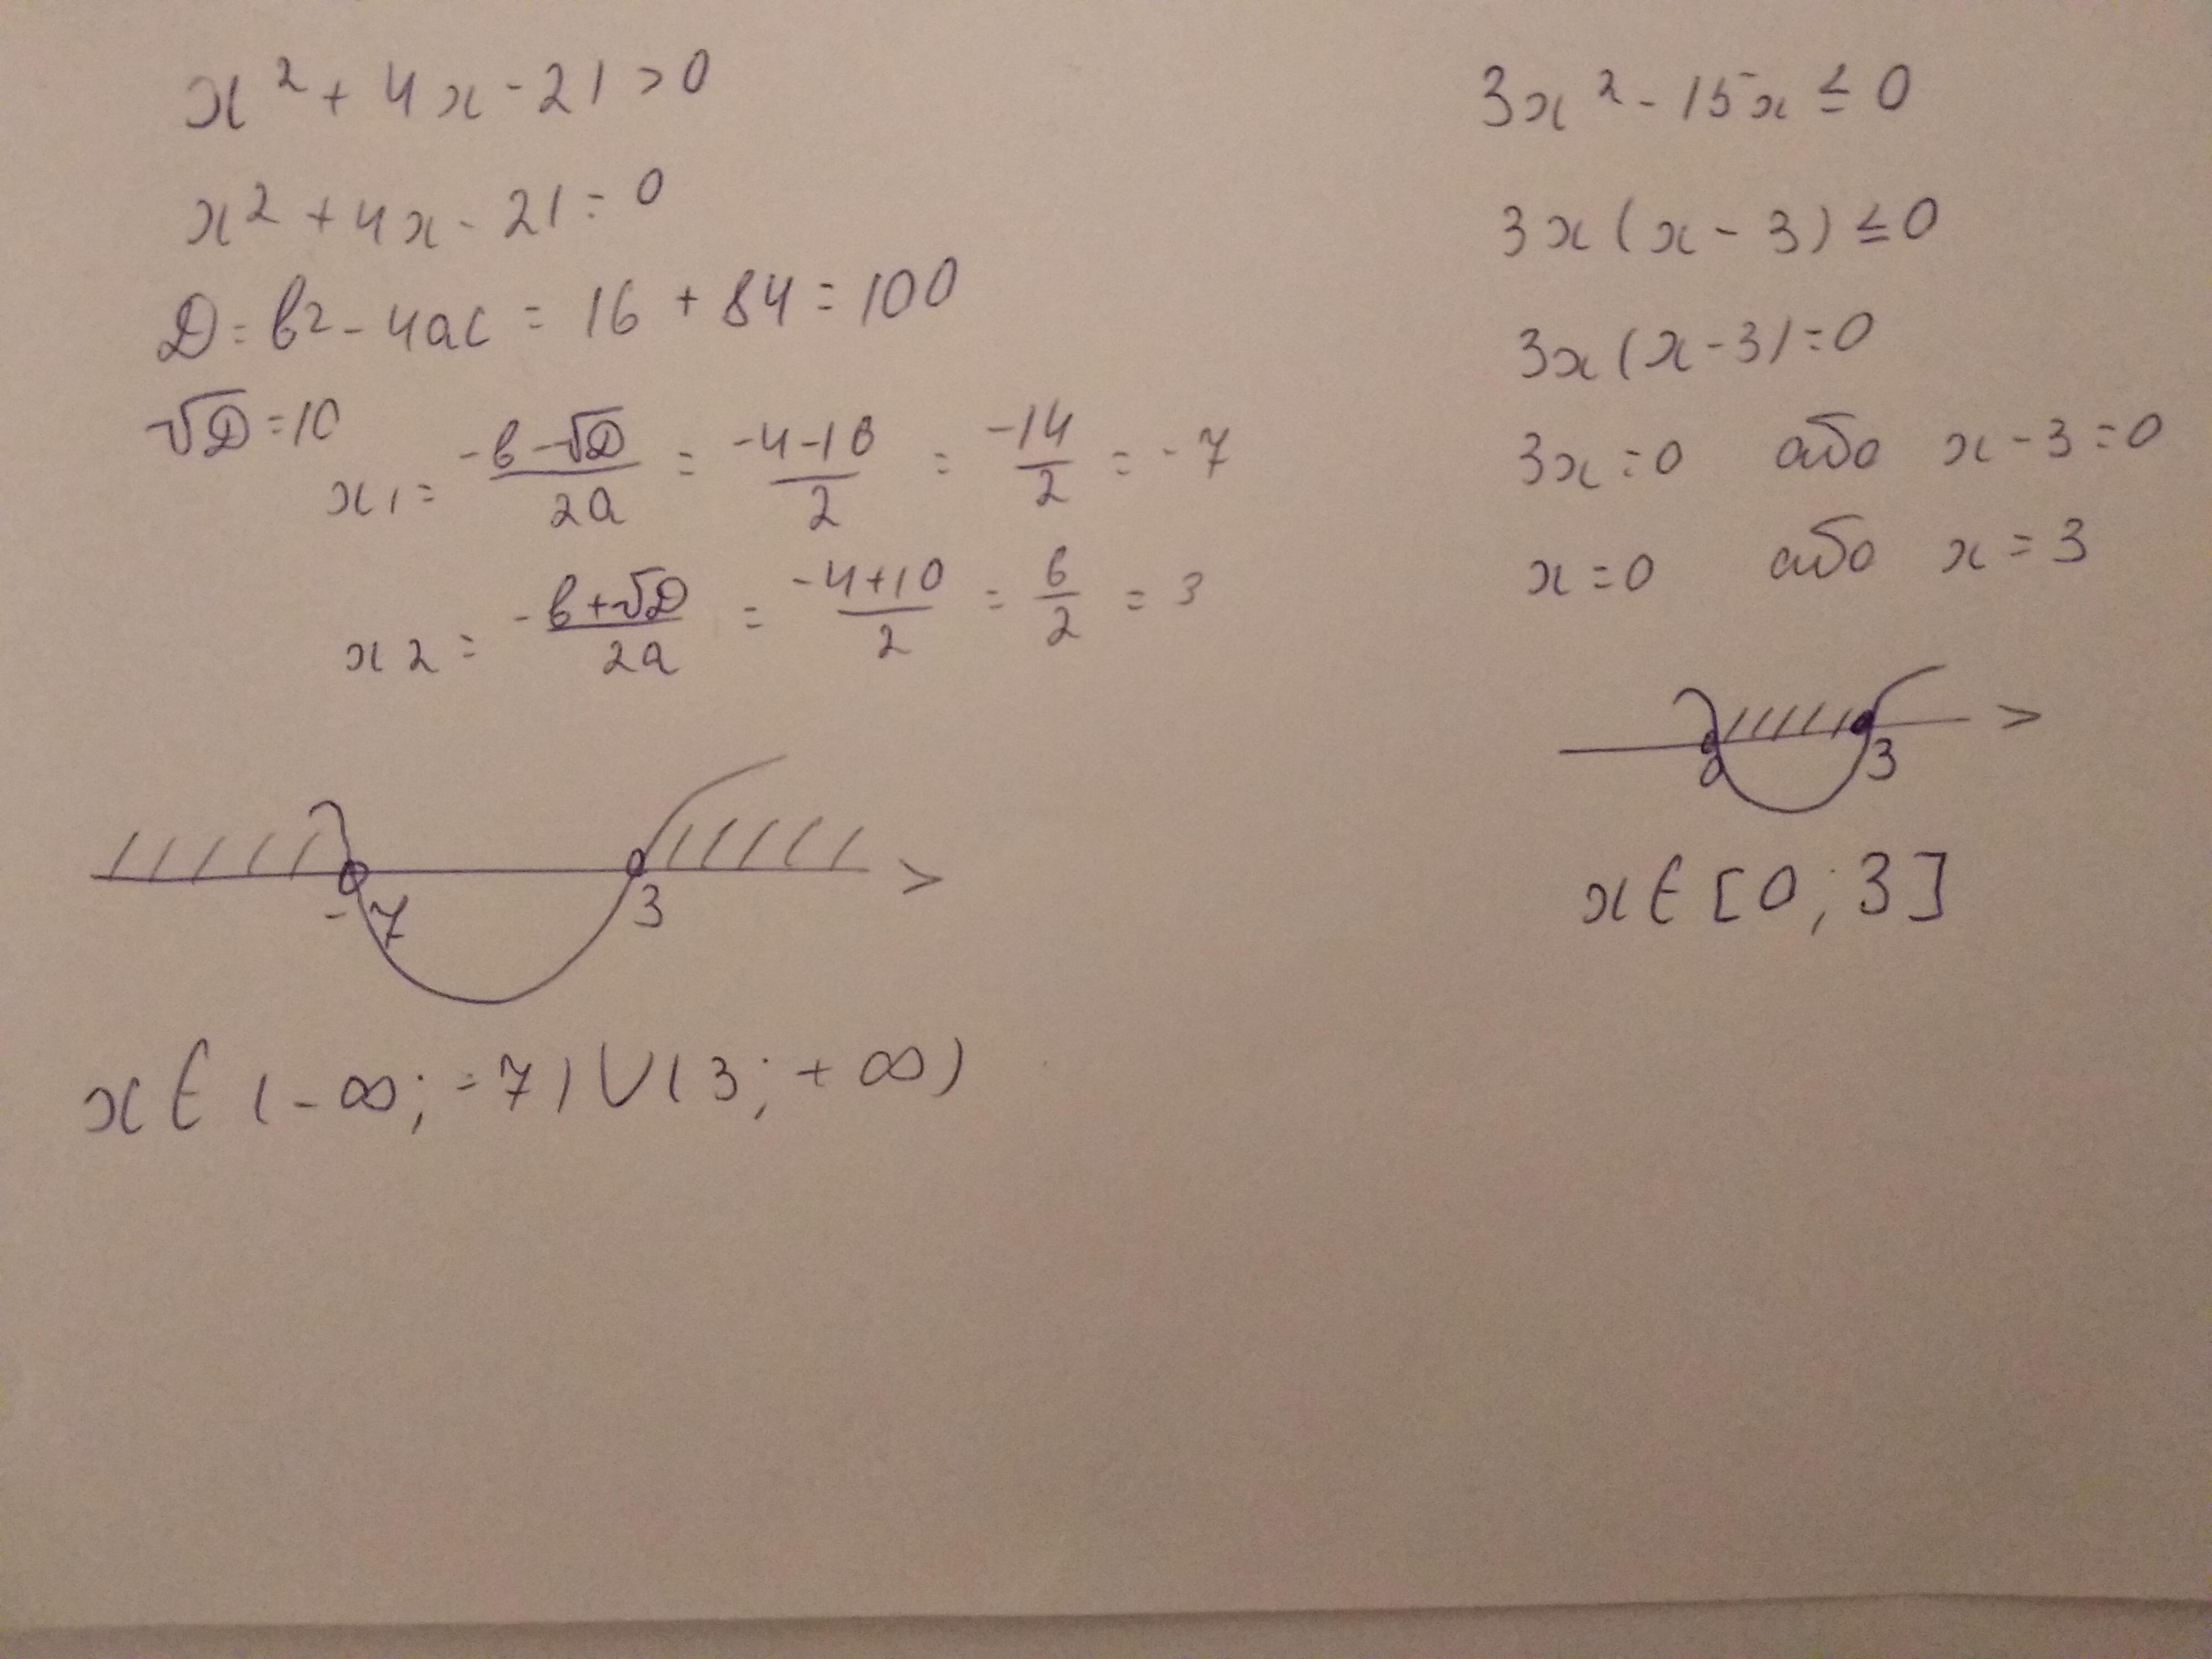 x² + 4x - 21 > 0
x² + 4x - 21 = 0
D = b² - 4ac = 16 + 84 = 100
√D = 10
x₁ = (-b - √D)/(2a) = (-4 - 10)/2 = -14/2 = -7
x₂ = (-b + √D)/(2a) = (-4 + 10)/2 = 6/2 = 3
-7 3
x ∈ (-∞; -7) ∪ (3; +∞)
3x² - 15x ≤ 0
3x(x - 3) ≤ 0
3x(x - 3) = 0
3x = 0 або x - 3 = 0
x = 0 або x = 3
0 3
x ∈ [0; 3]